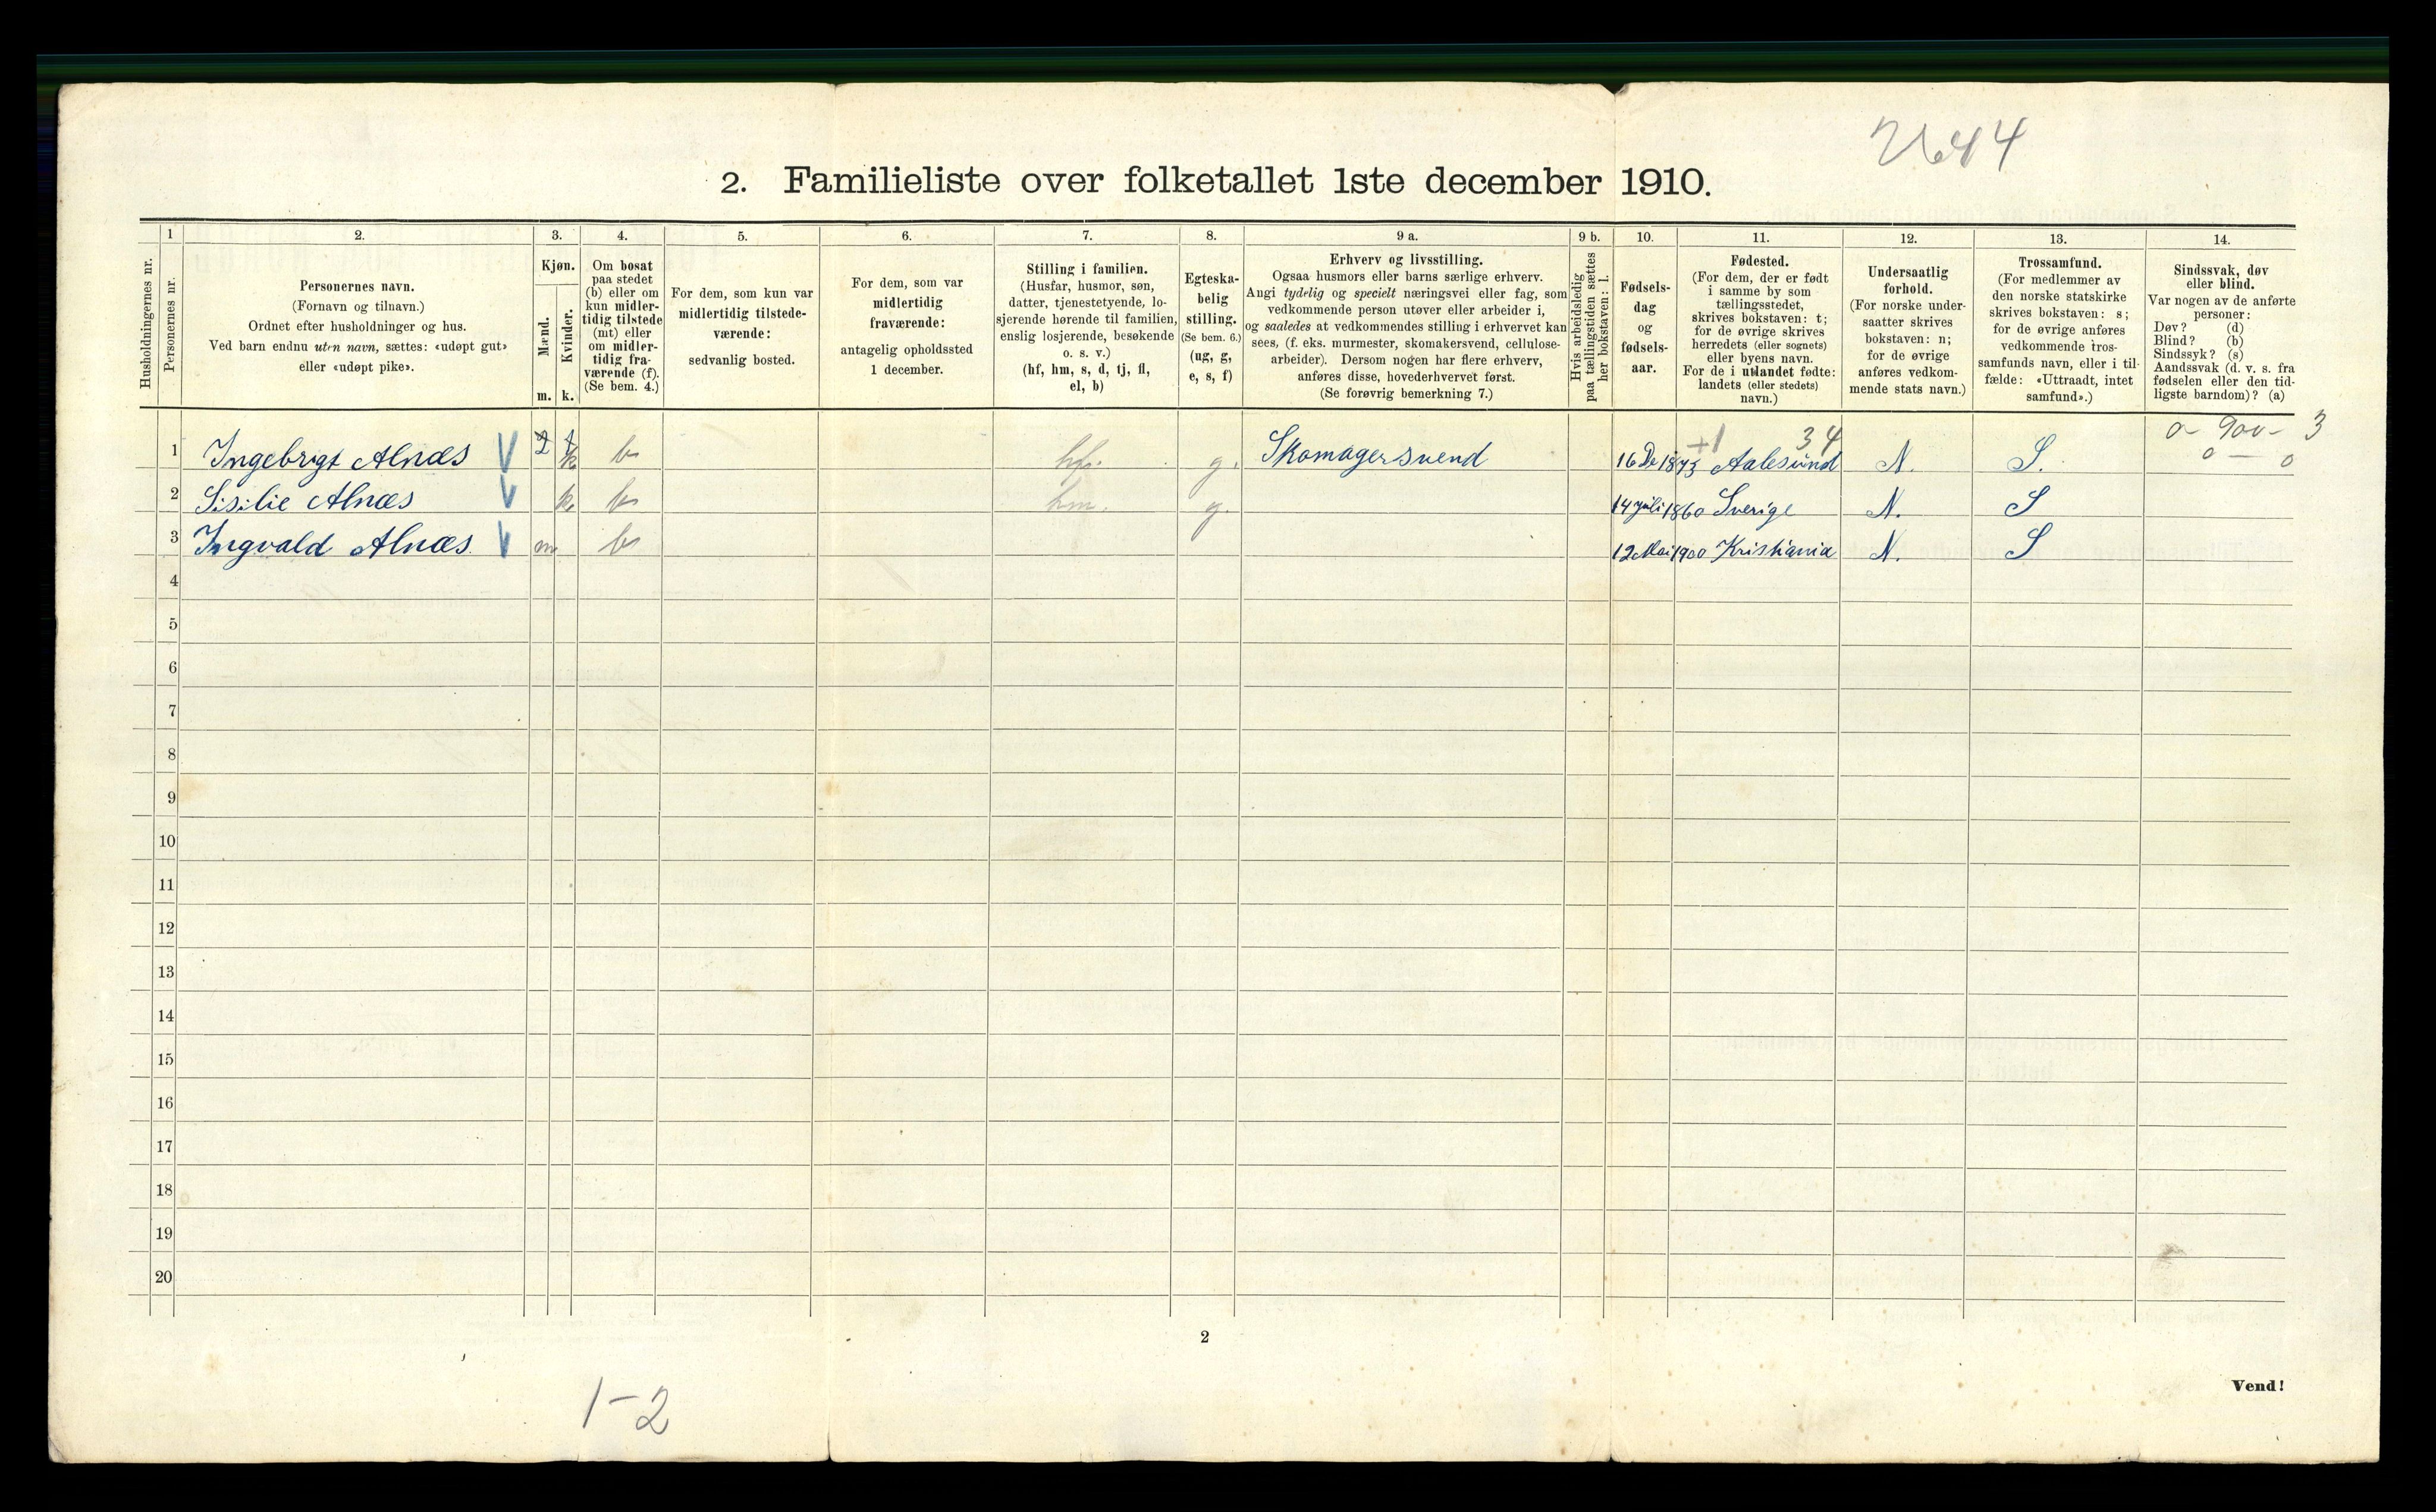 2644
2. Familieliste over folketallet 1ste december 1910.
Husholdningernes nr.
1
Personernes nr.
2.
Personernes navn.
(Fornavn og tilnavn.)
Ordnet efter husholdninger og hus.
Ved barn endnu uten navn, sættes: «udøpt gut»
eller «udøpt pike».
3.
Kjøn.
Mænd.
Kvinder.
m. k.
4.
Om bosat
paa stedet
(b) eller om
kun midler-
tidig tilstede
(mt) eller
om midler-
tidig fra-
værende (f).
(Se bem. 4.)
5.
For dem, som kun var
midlertidig tilstede-
værende:
sedvanlig bosted.
6.
For dem, som var
midlertidig
fraværende:
antagelig opholdssted
1 december.
7.
Stilling i familien.
(Husfar, husmor, søn,
datter, tjenestetyende, lo-
sjerende hørende til familien,
enslig losjerende, besøkende
o. s. v.)
(hf, hm, s, d, tj, fl,
el, b)
8.
Egteska-
belig
stilling.
(Se bem. 6.)
(ug, g,
e, s, f)
9 a.
Erhverv og livsstilling.
Ogsaa husmors eller barns særlige erhverv.
Angi tydelig og specielt næringsvei eller fag, som
vedkommende person utøver eller arbeider i,
og saaledes at vedkommendes stilling i erhvervet kan
sees, (f. eks. murmester, skomakersvend, cellulose-
arbeider). Dersom nogen har flere erhverv,
anføres disse, hovederhvervet først.
(Se forøvrig bemerkning 7.)
9 b.
Hvis arbeidsledig
paa tællingstiden sættes
her bokstaven: l.
10.
Fødsels-
dag
og
fødsels-
aar.
11.
Fødested.
(For dem, der er født
i samme by som
tællingsstedet,
skrives bokstaven: t;
for de øvrige skrives
herredets (eller sognets)
eller byens navn.
For de i utlandet fødte:
landets (eller stedets)
navn.)
12.
Undersaatlig
forhold.
(For norske under-
saatter skrives
bokstaven: n;
for de øvrige
anføres vedkom-
mende stats navn.)
13.
Trossamfund.
(For medlemmer av
den norske statskirke
skrives bokstaven: s;
for de øvrige anføres
vedkommende tros-
samfunds navn, eller i til-
fælde: «Uttraadt, intet
samfund».)
14.
Sindssvak, døv
eller blind.
Var nogen av de anførte
personer:
Døv? (d)
Blind? (b)
Sindssyk? (s)
Aandssvak (d. v. s. fra
fødselen eller den tid-
ligste barndom)? (a)
2 1 +1 34 0- 900- 3
0 — 0
1 Ingebrigt Alnæs V k b hf. g. Skomagersvend 16 De 1843 Aalesund N. S.
2 Sisilie Alnæs V k b hm. g. 14 juli 1860 Sverige N. S
3 Ingvald Alnæs. V m b 12 Mai 1900 Kristiania N. S
4
5
6
7
8
9
10
11
12
13
14
15
16
17
18
19
20
2
Vend!
1-2